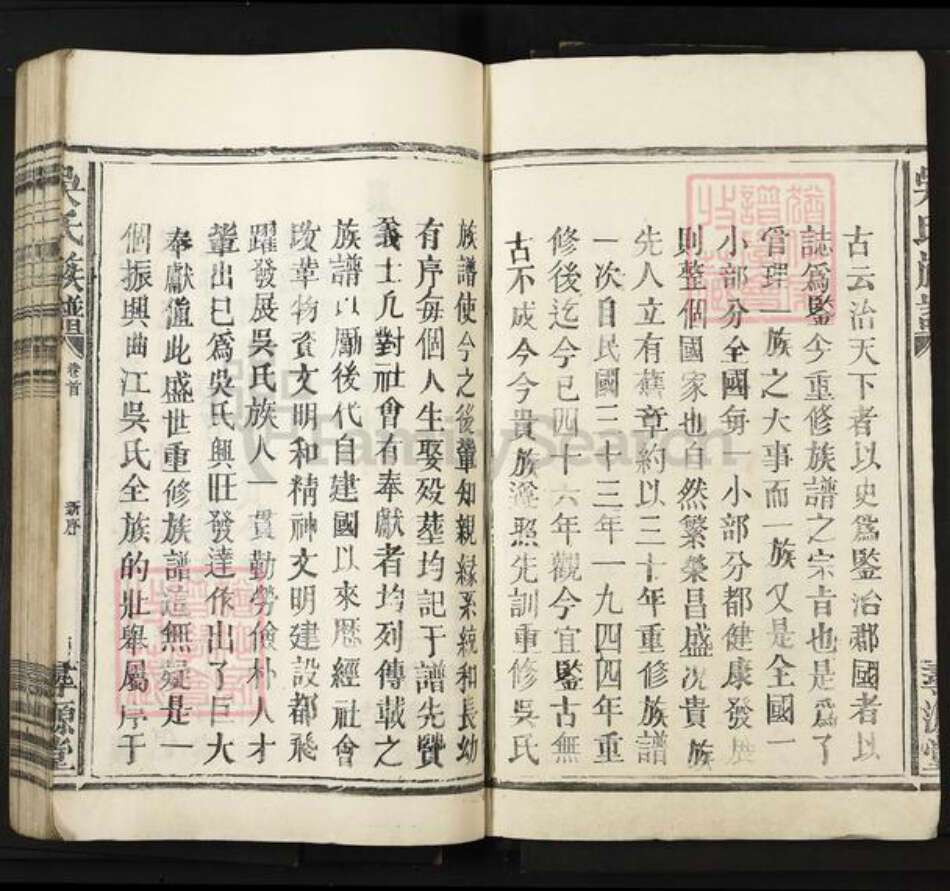 古云治天下者以史爲鍳治郡國者以
誌爲鍳今重修族譜之宗旨也是爲了
管理一族之大事而一族又是全國一
小部分全國每一小部分都健康發展
則整個國家也自然繁榮昌盛况貴族
先人立有舊章約以三十年重修族譜
一次自民國三十三年一九四四年重
修後迄今已四十六年觀今宜鍳古無
古不成今今貴族遵照先訓重修吳氏
族譜使今之後輩知親緣系統和長幼
有序每個人生娶殁塟均記于譜先賢
義士凢對社會有奉獻者均列傳載之
族譜以勵後代自建國以來歷經社會
改革物資文明和精神文明建設都飛
躍發展吳氏族人一貫勤勞儉朴人才
輩出已爲吳氏興旺發達作出了巨大
奉獻值此盛世重修族譜這無疑是一
個振興曲江吳氏全族的壯舉屬序于
吳氏族譜
卷首
新序
一
孝源堂
吳氏族譜
孝源堂
FamilySearch